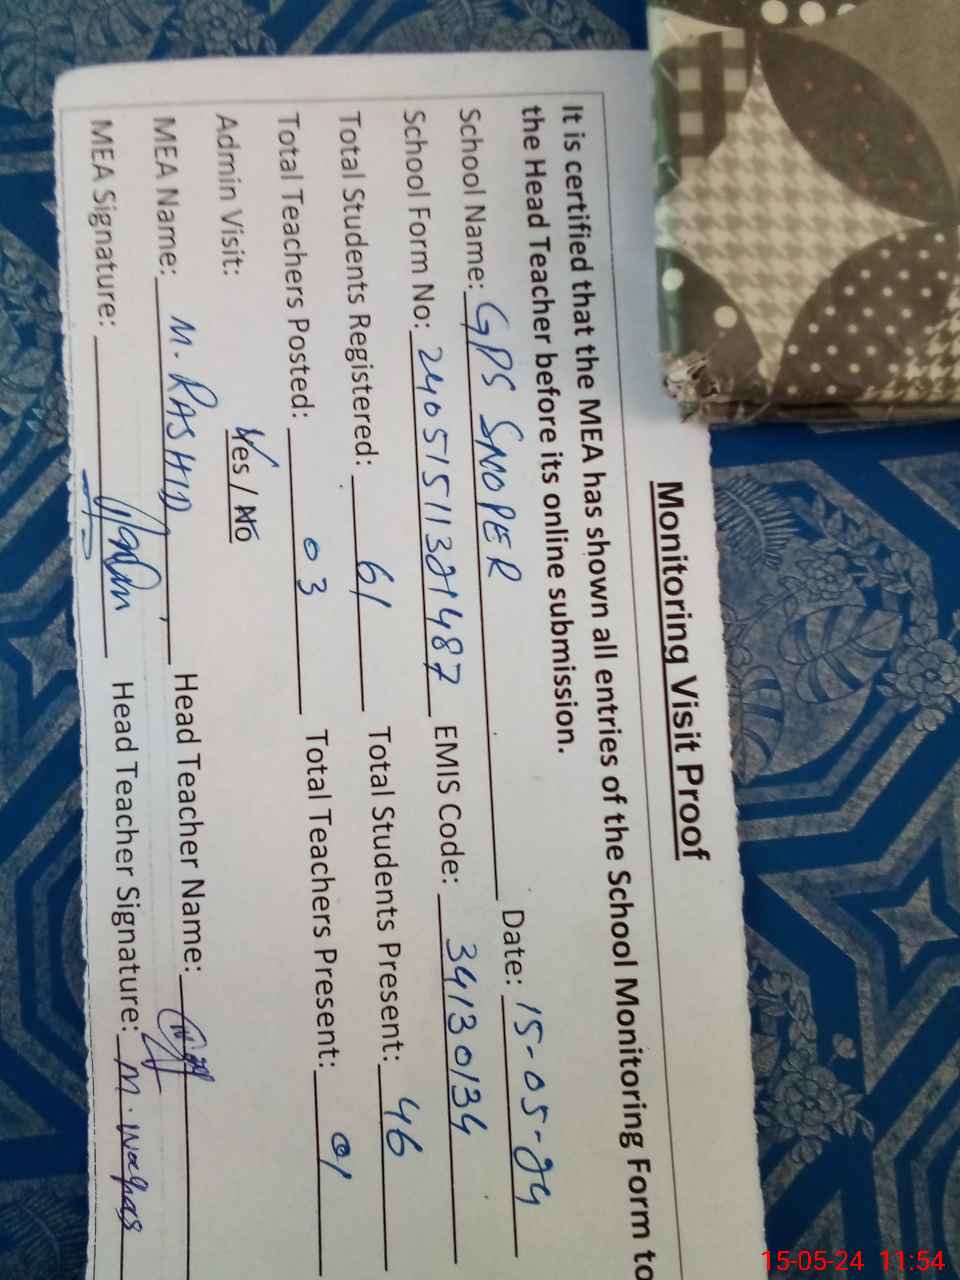 Monitoring Visit Proof
It is certified that the MEA has shown all entries of the School Monitoring Form to
the Head Teacher before its online submission.
School Name: GPS SNOPER Date: 15-05-24
School Form No: 24051511321487 EMIS Code: 34130134
Total Students Registered: 61 Total Students Present: 46
Total Teachers Posted: 03 Total Teachers Present: 01
Admin Visit: Yes / No
MEA Name: M. RASHID Head Teacher Name:
MEA Signature: Head Teacher Signature: M. Waqas
15-05-24 11:54